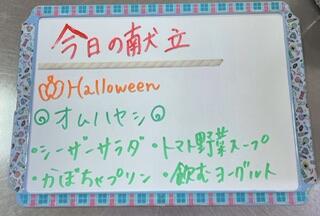 今日の献立
Halloween
オムハヤシ
・シーザーサラダ ・トマト野菜スープ
・かぼちゃプリン ・飲むヨーグルト